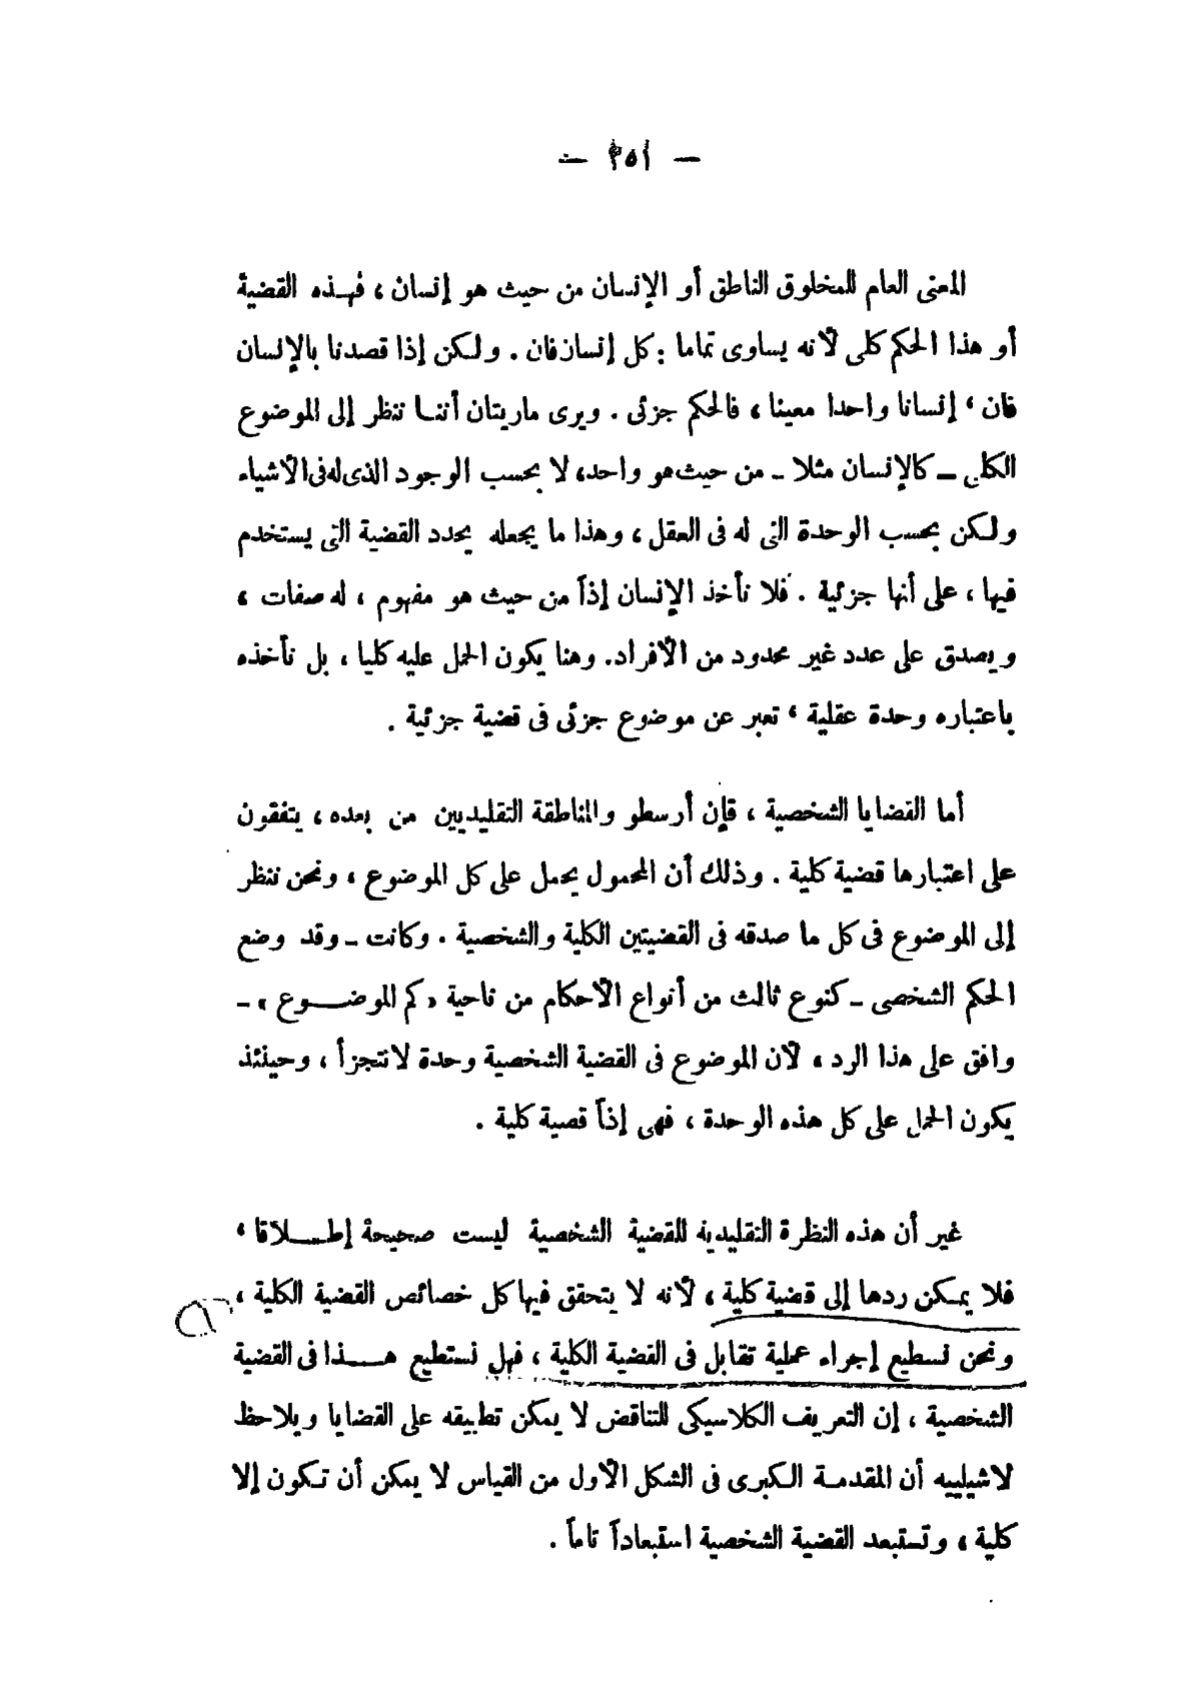 المعنى العام للمخلوق الناطق أو الإنسان من حيث هو إنسان ، فهذه القضية
أو هذا الحكم كلى لأنه يساوى تماما : كل إنسان فان . ولكن إذا قصدنا بالإنسان
فان ، إنسانا واحدا معينا ، فالحكم جزئى . ويرى ماريتان أننا ننظر إلى الموضوع
الكلى ــ كالإنسان مثلا ــ من حيث هو واحد ، لا بحسب الوجود الذى له فى الأشياء
ولكن بحسب الوحدة التى له فى العقل ، وهذا ما يجعله يحدد القضية التى يستخدم
فيها ، على أنها جزئية . فلا نأخذ الإنسان إذاً من حيث هو مفهوم ، له صفات ،
ويصدق على عدد غير محدود من الأفراد. وهنا يكون الحمل عليه كليا ، بل نأخذه
باعتباره وحدة عقلية ، تعبر عن موضوع جزئى فى قضية جزئية .
أما القضايا الشخصية ، فإن أرسطو والمناطقة التقليديين من بعده ، يتفقون
على اعتبارها قضية كلية . وذلك أن المحمول يحمل على كل الموضوع ، ونحن ننظر
إلى الموضوع فى كل ما صدقه فى القضيتين الكلية والشخصية . وكانت ــ وقد وضع
الحكم الشخصى ــ كنوع ثالث من أنواع الأحكام من ناحية «كم الموضـــوع» ــ
وافق على هذا الرد ، لأن الموضوع فى القضية الشخصية وحدة لا تتجزأ ، وحينئذ
يكون الحمل على كل هذه الوحدة ، فهى إذاً قصية كلية .
غير أن هذه النظرة التقليدية للقضية الشخصية ليست صحيحة إطـــلاقا ،
فلا يمكن ردها إلى قضية كلية ، لأنه لا يتحقق فيها كل خصائص القضية الكلية ،
ونحن نسطيع إجراء عملية تقابل فى القضية الكلية ، فهل نستطيع هـــذا فى القضية
الشخصية ، إن التعريف الكلاسيكى للتناقض لا يمكن تطبيقه على القضايا ويلاحظ
لاشيلييه أن المقدمــة الكبرى فى الشكل الأول من القياس لا يمكن أن تكون إلا
كلية ، وتستبعد القضية الشخصية استبعاداً تاماً .